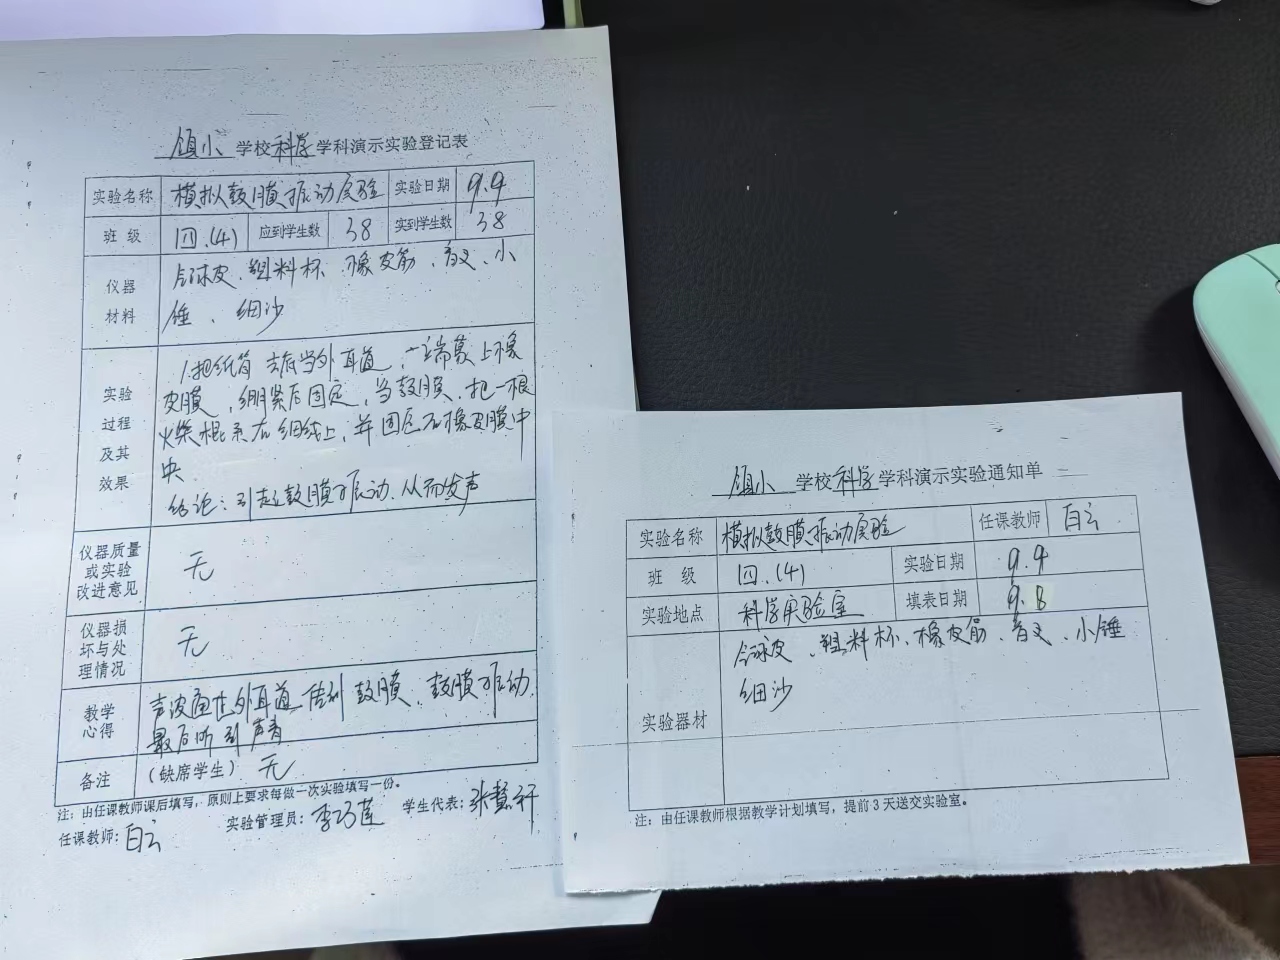 镇小 学校科学学科演示实验登记表
实验名称 模拟鼓膜振动实验 实验日期 9.9
班 级 四.(4) 应到学生数 38 实到学生数 38
仪器材料 气球皮、塑料杯、橡皮筋、音叉、小
锤、细沙
实验过程及其效果 1.把纸筒 当外耳道,一端蒙上橡
皮膜,绷紧后固定,当鼓膜.把一根
火柴棍系在细线上,并固定在橡皮膜中
央
结论:引起鼓膜振动.从而发声
仪器质量或实验改进意见 无
仪器损坏与处理情况 无
教学心得 声波通过外耳道传到鼓膜、鼓膜振动.
最后听到声音
备注 (缺席学生) 无
注:由任课教师课后填写,原则上要求每做一次实验填写一份。
任课教师:白云 实验管理员:李巧莲 学生代表:张慧轩
镇小 学校科学学科演示实验通知单
实验名称 模拟鼓膜振动实验 任课教师 白云
班 级 四.(4) 实验日期 9.9
实验地点 科学实验室 填表日期 9.8
实验器材 气球皮、塑料杯、橡皮筋、音叉、小锤
细沙
注:由任课教师根据教学计划填写,提前3天送交实验室。